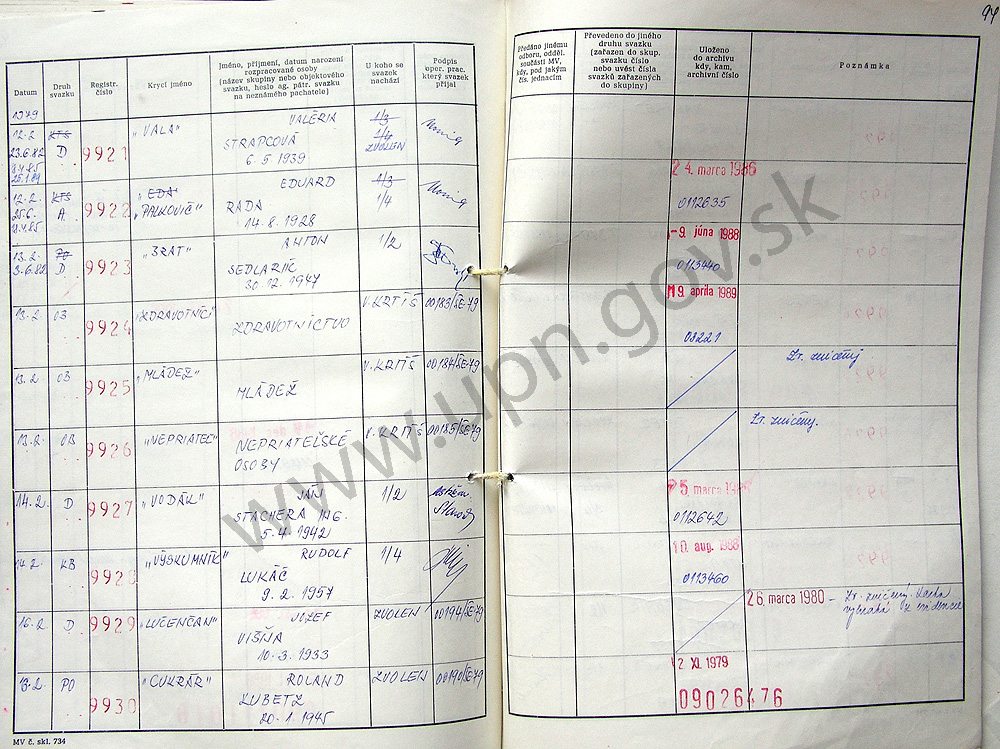 94
Datum
Druh svazku
Registr. číslo
Krycí jméno
Jméno, příjmení, datum narození
rozpracované osoby
(název skupiny nebo objektového
svazku, heslo ag. pátr. svazku
na neznámého pachatele)
U koho se
svazek
nachází
Podpis
oper. prac.
který svazek
přijal
Předáno jinému
odboru, odděl.
součásti MV,
kdy, pod jakým
čís. jednacím
Převedeno do jiného
druhu svazku
(zařazen do skup.
svazku číslo
nebo uvést čísla
svazků zařazených
do skupiny)
Uloženo
do archivu
kdy, kam,
archivní číslo
Poznámka
1979
12.2. KTS 9921 „VALA" VALÉRIA 1/3
23.6.82 D STRAPCOVÁ 1/4
9.4.85 6.5.1939 ZVOLEN
25.1.89
12.2. KTS 9922 „EDA" EDUARD 1/3 24. marca 1986
25.6. A „PALKOVIČ" RADA 1/4 0112635
14.8.1928
13.2. PO 9923 „BRAT" ANTON 1/2 -9. júna 1988
3.6.82 D SEDLARIK 0113440
30.12.1947
13.2. OB 9924 „ZDRAVOTNÍCI" ZDRAVOTNÍCTVO V. KRTÍŠ 00183/SE-79 19 apríla 1989
08221
13.2. OB 9925 „MLÁDEŽ" MLÁDEŽ V. KRTÍŠ 00184/SE-79 Zv. zničený
13.2. OB 9926 „NEPRIATEL" NEPRIATEĽSKÉ V. KRTÍŠ 00185/SE-79 Zv. zničený.
OSOBY
14.2. D 9927 „VODÁK" JÁN 1/2 25 marca
STACHERA ING. 0112642
5.4.1942
14.2. KB 9928 „VÝSKUMNÍK" RUDOLF 1/4 10. aug. 1988
LUKÁČ 0113460
9.2.1957
16.2. D 9929 „LUČENČAN" JOZEF ZVOLEN 00194/SE-79 26. marca 1980 – Zv. zničený.
VIŠŇA
10.3.1933
13.2. PO 9930 „CUKRÁR" ROLAND ZVOLEN 00190/SE-79 12 XI. 1979
LUBETZ 09026476
20.1.1945
MV č. skl. 734
www.upn.gov.sk